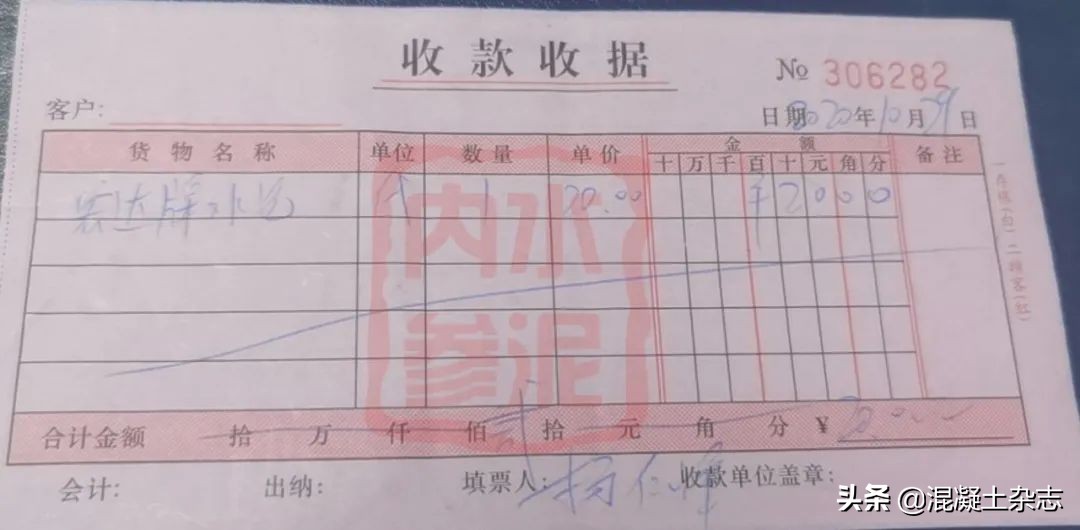 收款收据
№ 306282
客户:
日期 2020年10月29日
货物名称 单位 数量 单价 金额 备注
十 万 千 百 十 元 角 分
宏达牌水泥 代 1 20.00 ¥2000
水泥内参
合计金额 拾 万 仟 佰 贰 拾 元 角 分 ¥ 20.00
会计: 出纳: 填票人: 杨仁 收款单位盖章:
一存根(白)二顾客(红)
头条 @混凝土杂志